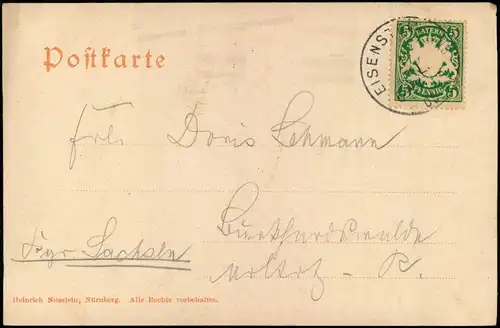 Postkarte
EISENST
BAYERN
5 5
PFENNIG
5 5
Frl. Doris Lehmann
Burkhardswalde
Kgr. Sachsen
Heinrich Nüsslein, Nürnberg. Alle Rechte vorbehalten.